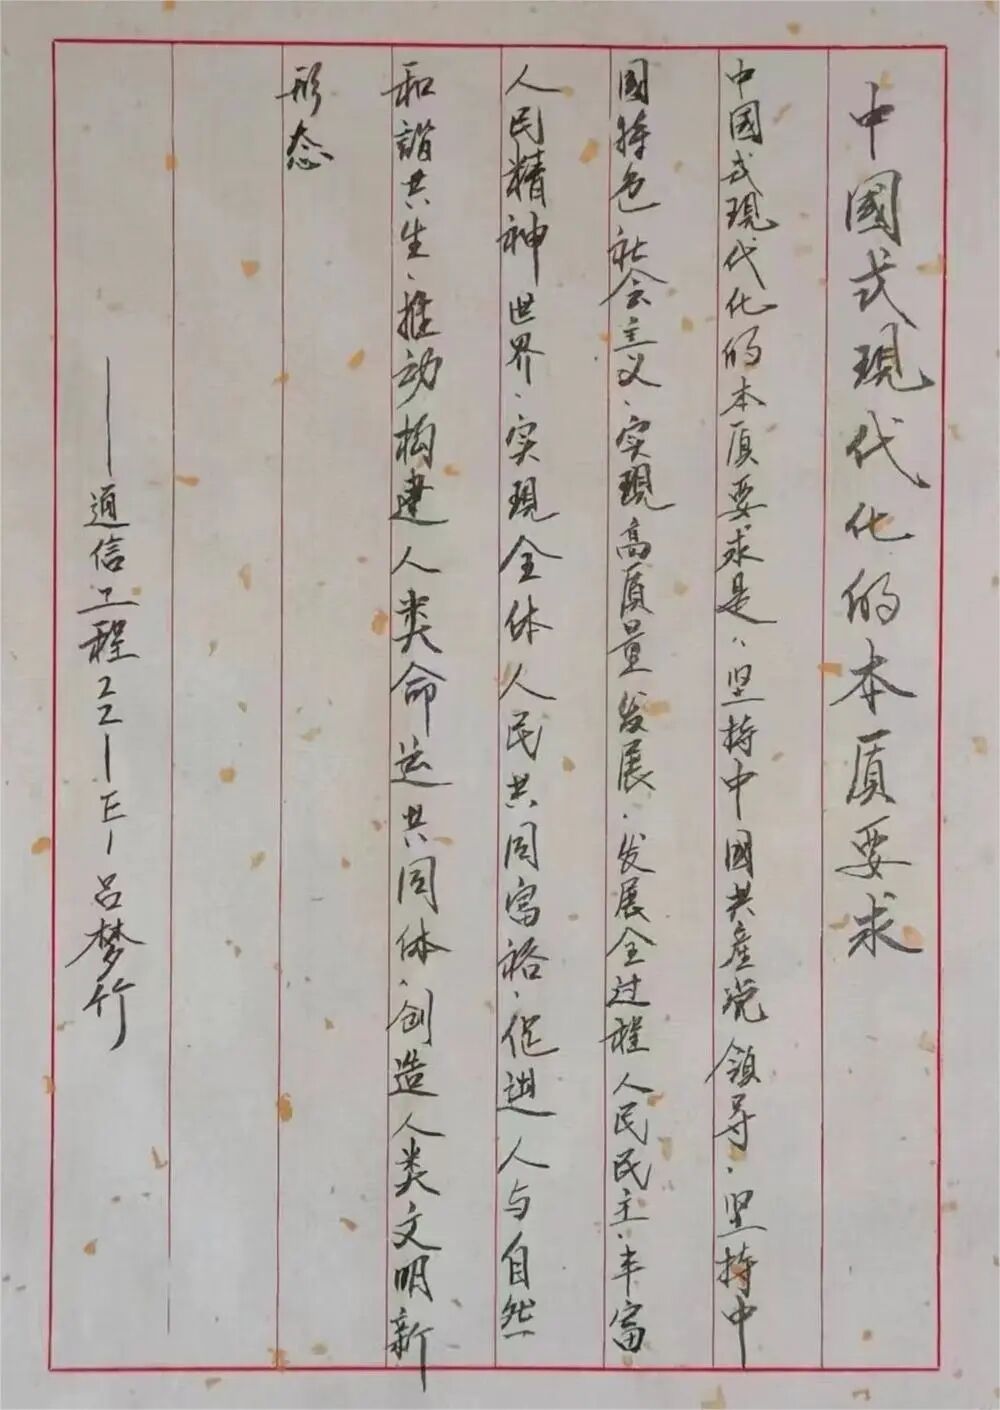 中國式現代化的本质要求
中国式現代化的本质要求是：坚持中國共產党領导、坚持中
國特色社会主义、实現高质量发展、发展全过程人民民主、丰富
人民精神世界、实現全体人民共同富裕、促進人与自然
和諧共生、推动构建人类命运共同体、创造人类文明新
形态
——通信工程22-1-E-吕梦竹